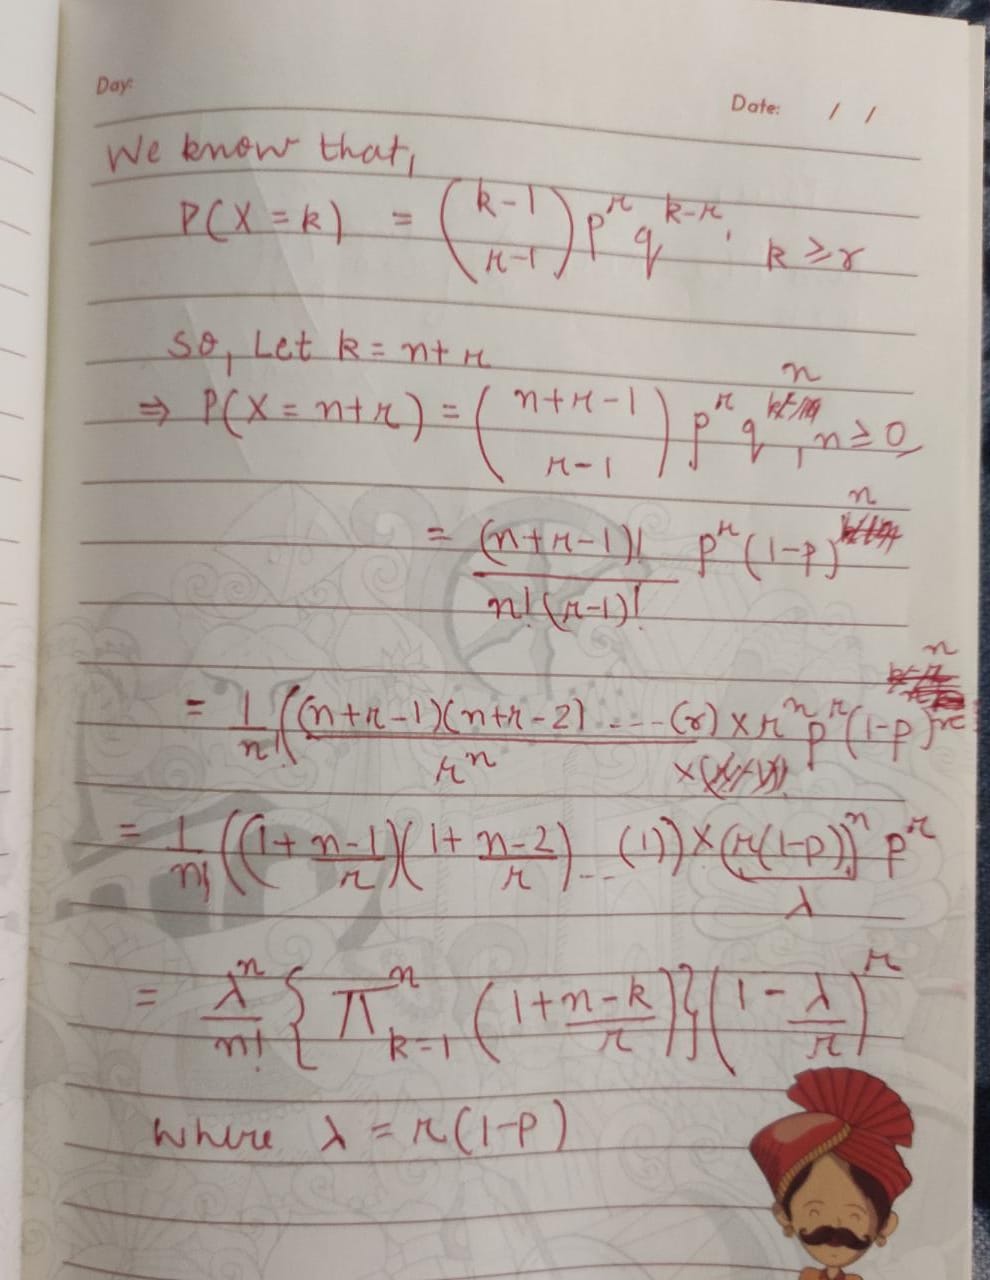 Day:
Date: / /
We know that,
P(X = k) = \binom{k-1}{r-1} p^r q^{k-r}, k ≥ r
so, Let k = n + r
⇒ P(X = n+r) = \binom{n+r-1}{r-1} p^r q^n, n ≥ 0
= \frac{(n+r-1)!}{n!(r-1)!} p^r (1-p)^n
= \frac{1}{n!} (\frac{(n+r-1)(n+r-2) .... (r)}{r^n} × r^n p^r (1-p)^n
= \frac{1}{n!} ((1 + \frac{n-1}{r})(1 + \frac{n-2}{r}) ... (1)) × (\underbrace{r(1-p)}_{λ})^n p^r
= \frac{λ^n}{n!} { Π_{k=1}^{n} (1 + \frac{n-k}{r}) } (1 - \frac{λ}{r})^r
where λ = r(1-p)